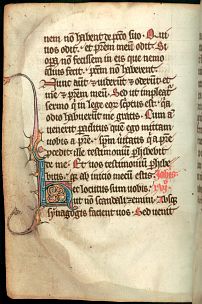 nem nō habent de pctō suo. Qui
me odit. et prem meū odit. Si
opa nō fecissem in eis que nemo
alius fecit. pctm nō haberent.
Nunc aut et viderūt et oderūt et
me et prem meū. Sed ut impleat
sermo qi in lege eoꝝ scptus est. qa
odio habuerūt me gratis. Cum a
uenerit paraclitus que ego mittam
uobis a pre. spm uitatis qi a pre
pcedit. ille testimoniū phibebit
de me. Et uos testimoniū phibe
bitis. qa ab inicio mecū estis. Johis
Hec locutus sum uobis. xvi
ut nō scandalizemini. Absqꝫ
synagogis facient uos. Sed uenit